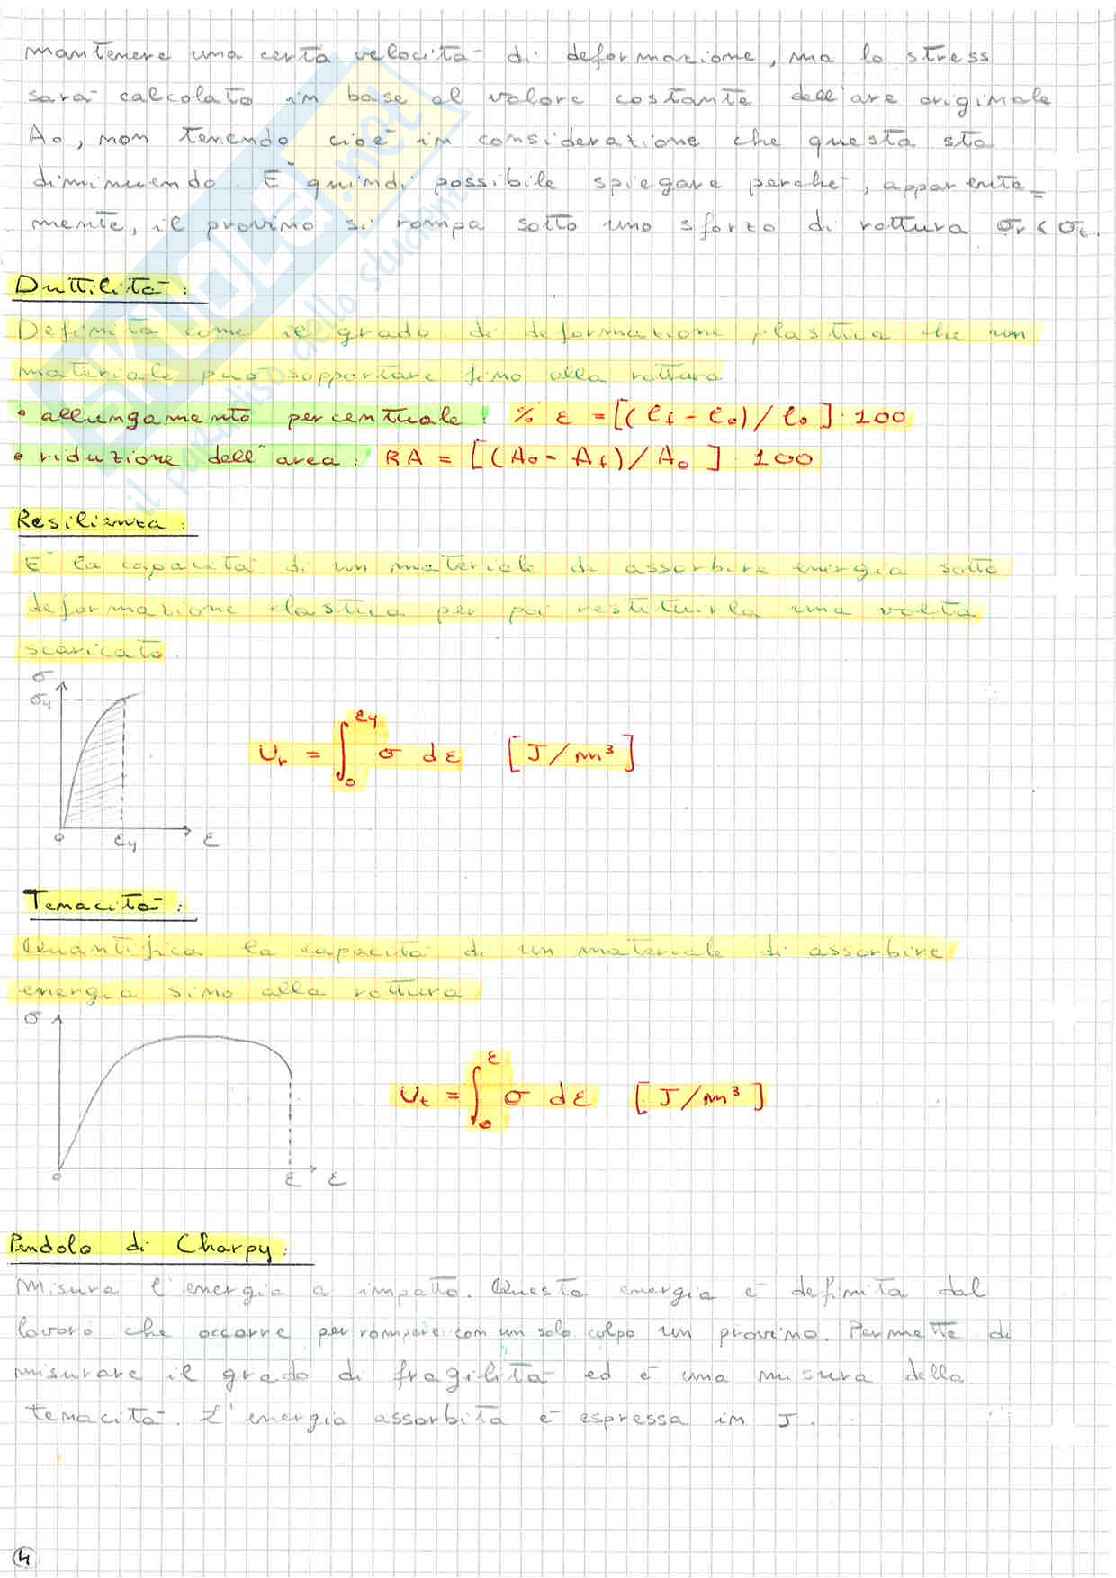 mantenere una certa velocità di deformazione, ma lo stress
sarà calcolato in base al valore costante dell'are originale
A₀, non tenendo cioè in considerazione che questa sta
diminuendo. E' quindi possibile spiegare perché, apparente=
mente, il provino si rompa sotto uno sforzo di rottura σr < σt.
Duttilità:
Definita come il grado di deformazione plastica che un
materiale può sopportare fino alla rottura
• allungamento percentuale: % ε = [(lf - l₀) / l₀] · 100
• riduzione dell'area: RA = [(A₀ - Af) / A₀] · 100
Resilienza:
E' la capacità di un materiale di assorbire energia sotto
deformazione elastica per poi restituirla una volta
scaricato.
σ
σy
Ur = ∫₀^εy σ dε [J/m³]
0 εy ε
Tenacità:
Quantifica la capacità di un materiale di assorbire
energia sino alla rottura
σ
Ut = ∫₀^ε σ dε [J/m³]
0 ε ε
Pendolo di Charpy:
Misura l'energia a impatto. Questa energia è definita dal
lavoro che occorre per rompere con un solo colpo un provino. Permette di
misurare il grado di fragilità ed è una misura della
tenacità. L'energia assorbita è espressa in J.
4